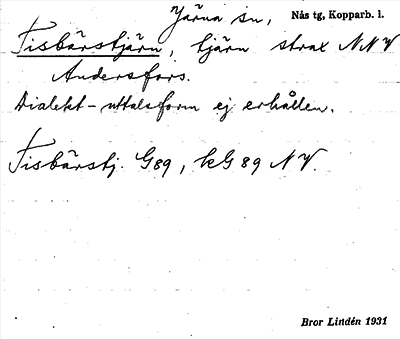 Järna sn, Nås tg, Kopparb. l.
Tisbärstjärn, tjärn strax NNV
Andersfors.
Dialekt-uttalsform ej erhållen.
Tisbärstj. G89, kG 89 NV.
Bror Lindén 1931